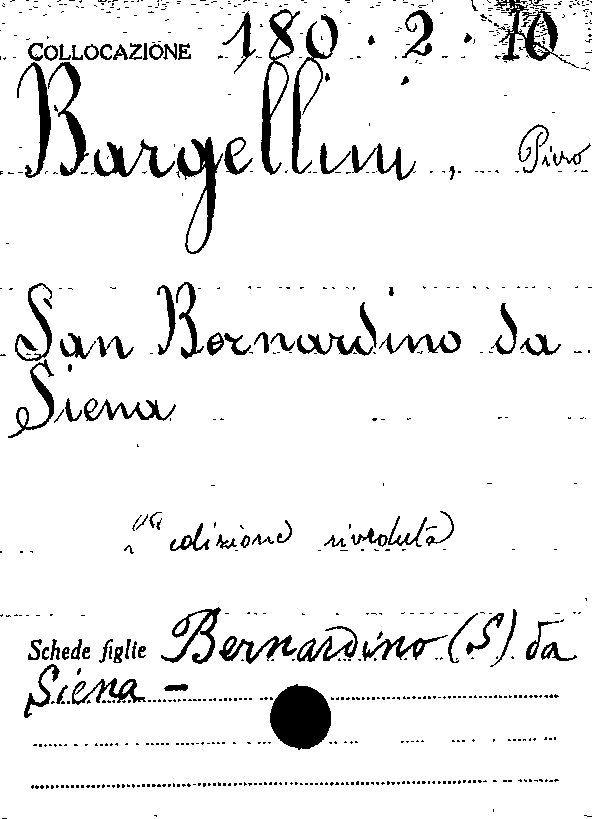 COLLOCAZIONE 180.2.10
Bargellini, Piero
San Bernardino da
Siena
edizione riveduta
Schede figlie Bernardino (S) da
Siena -